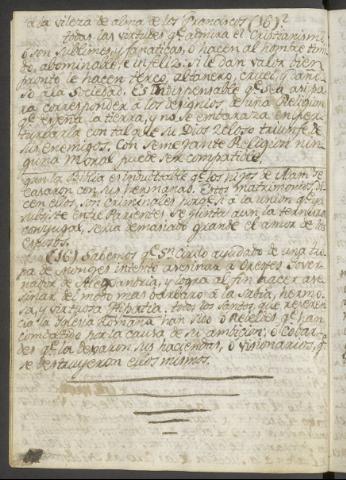 a la vileza de alma de los Franciscos (16)?
todas las virtudes qe. admira el Cristianismo
o son sublimes, y fanaticas, o hacen al hombre timi-
do, abominable, e infeliz. Si le dan valor bien
pronto le hacen terco, altanero, cruel, y daño-
so a la Sociedad. Es indispensable qe. sea asi pa-
ra corresponder a los designios de una Religion
qe. la tierra, y no se embaraza en per-
turbarla con tal que su Dios zeloso triunfe de
sus enemigos. Con semejante Religion nin-
guna Moral puede ser compatible.
gun la Biblia es indubitable qe. los hijos de Adam se
casaron con sus hermanas. Estos matrimonios, di-
cen ellos, son criminales porqe. si a la union qe. ya
subsiste entre Parientes se junta aun la ternura
conyugal, seria demasiado grande el amor de los
esposos.
(16) Sabemos qe. Sn. Cirilo ayudado de una tro-
pa de Monges intentó asesinar a Orestes Gover-
nador de Alexandria, y logra al fin hacer ase-
sinar del modo mas barbaro a la Sabia, hermo-
sa, y virtuosa Hipatia. todos los Santos que reveren-
cia la Iglesia Romana han sido o rebeldes qe. han
combatido por la causa de su ambicion; o cobar-
des qe. la dexaron sus haciendas; o visionarios, qe.
se destruyeron ellos mismos.